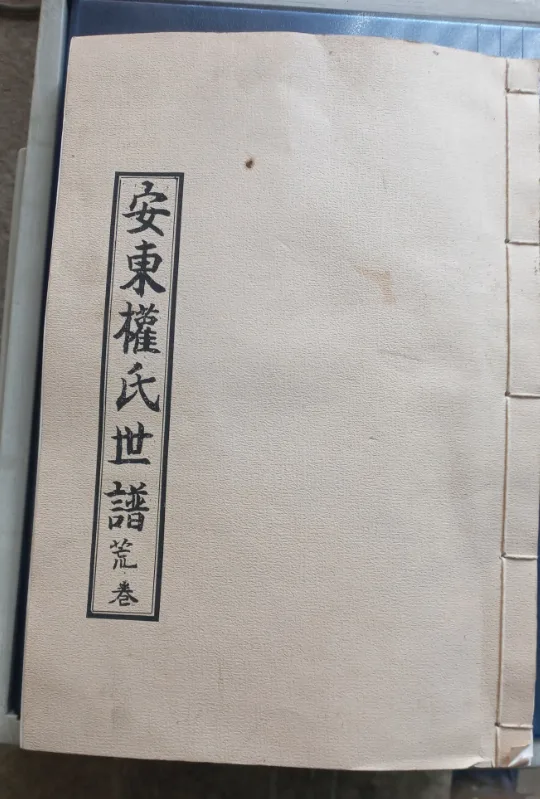 安東權氏世譜 荒卷